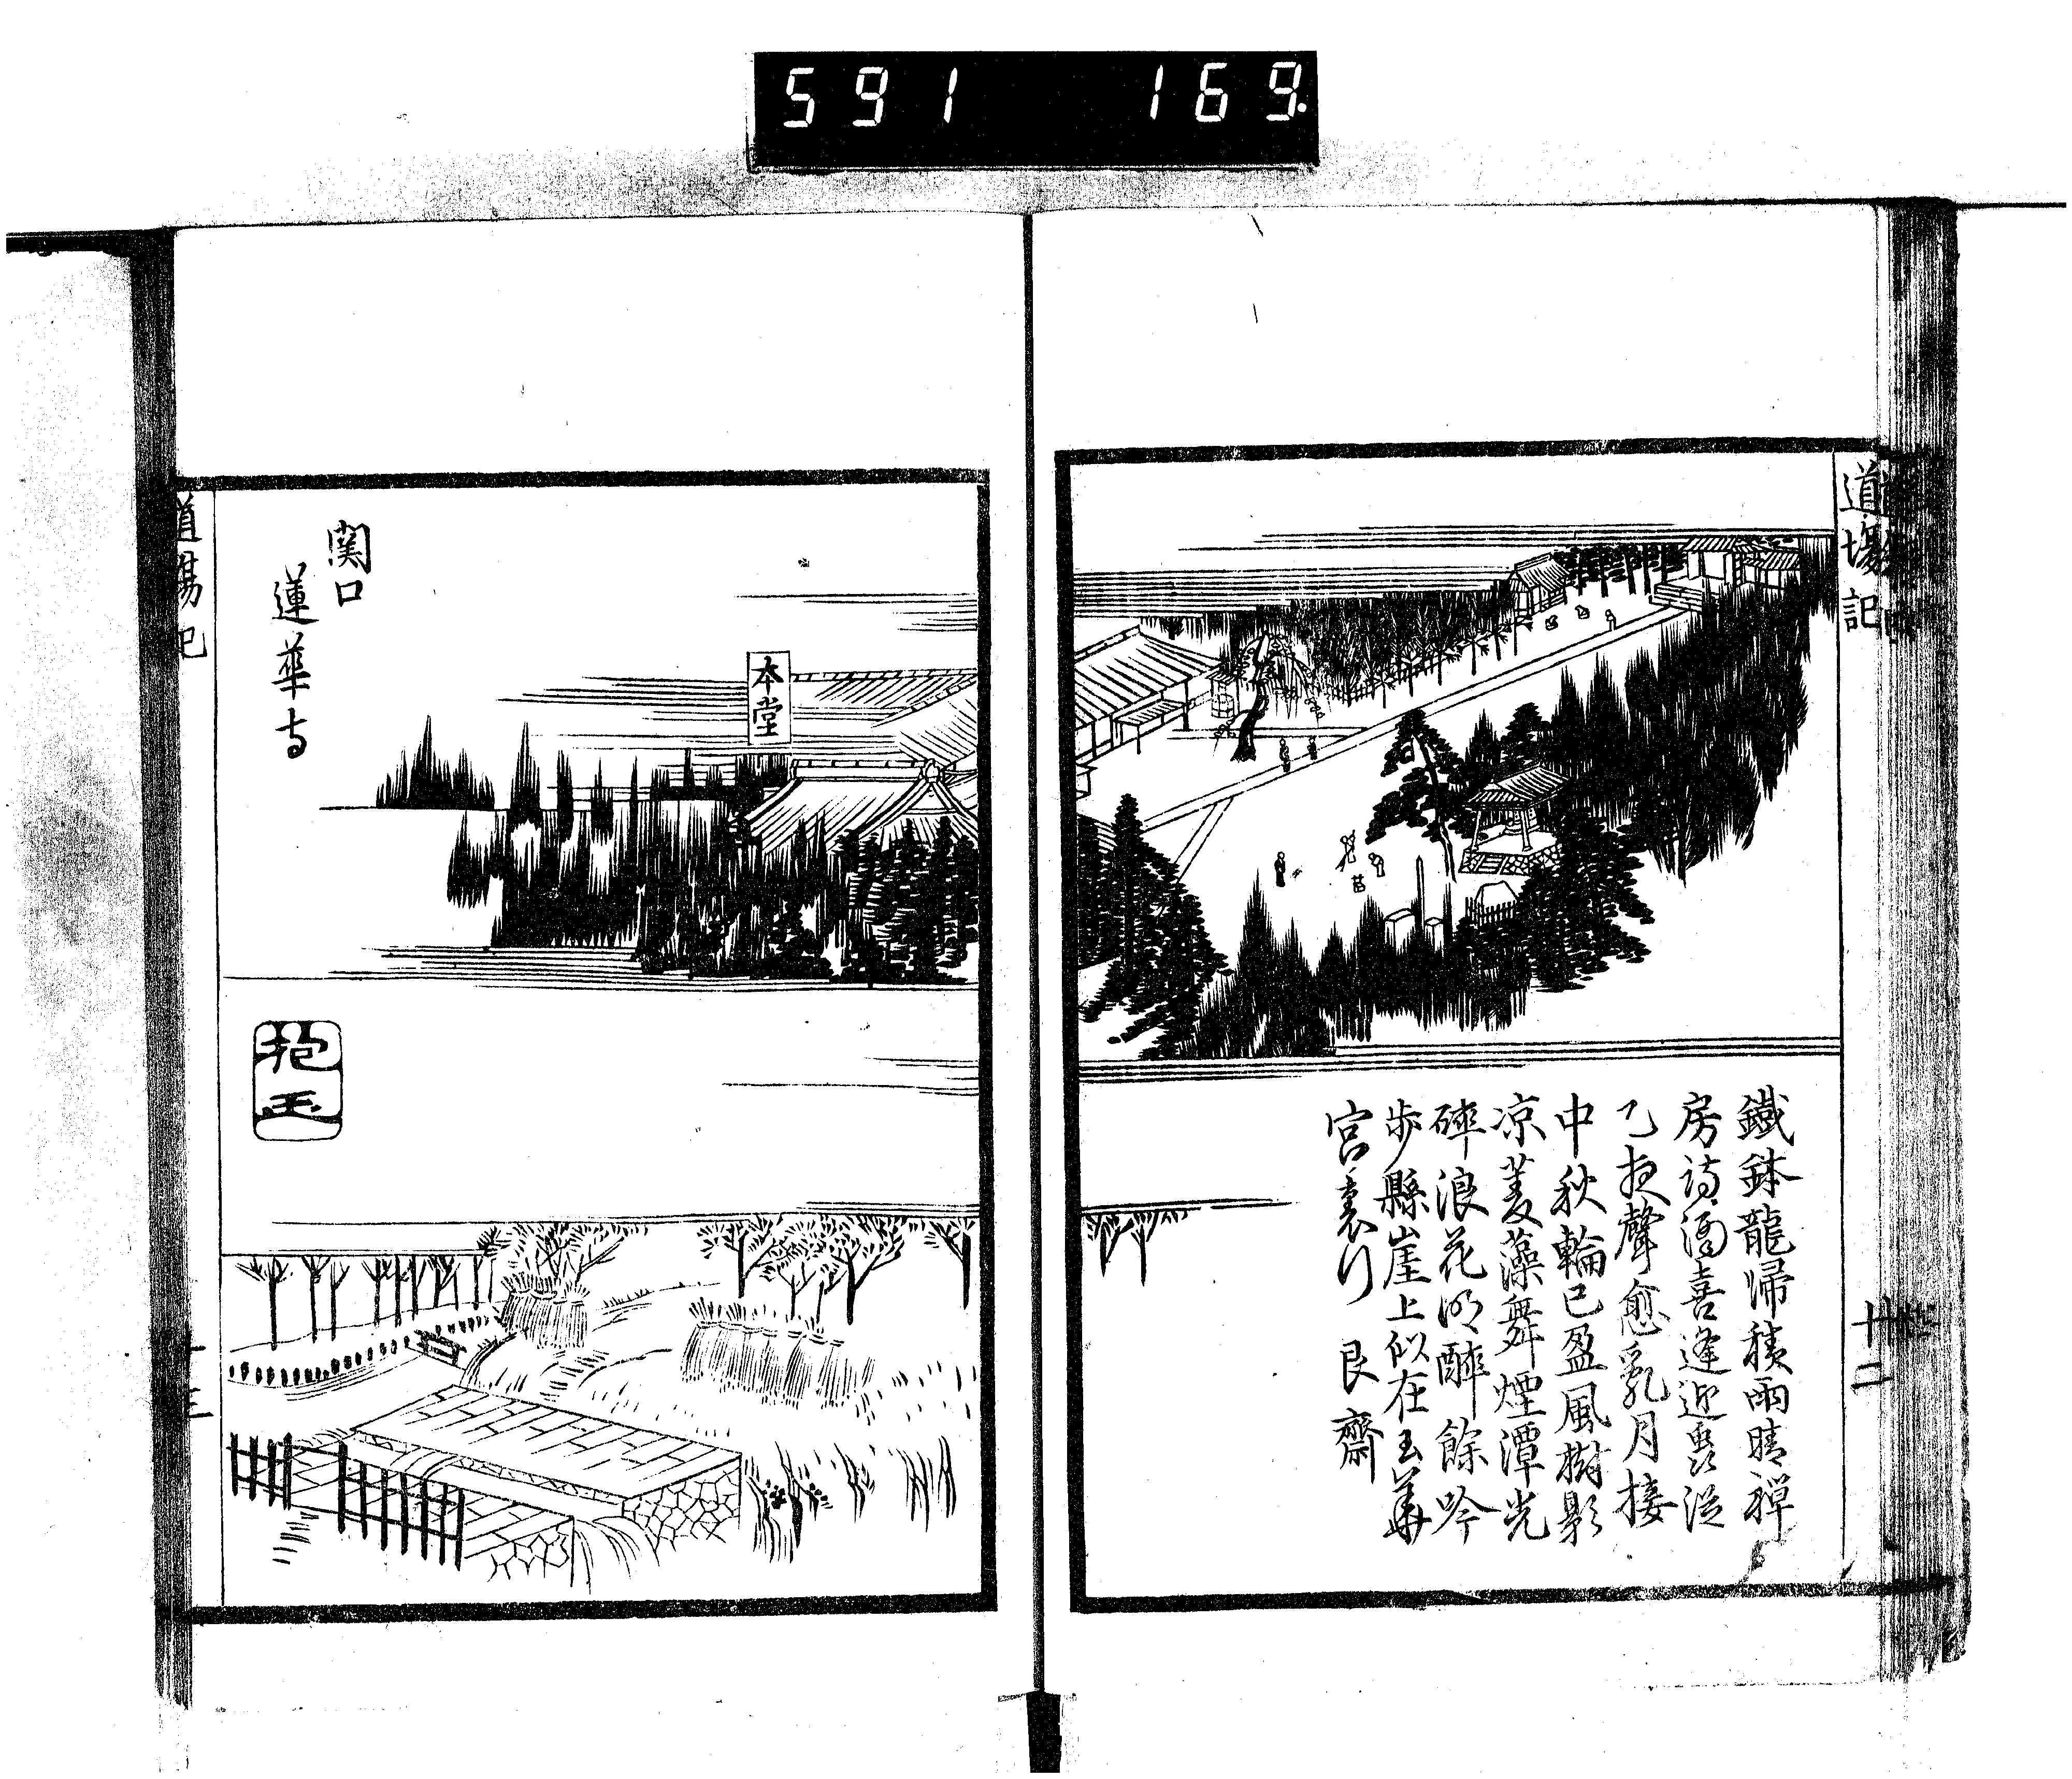 591 169.
道場記
廿二
鐵鉢龍帰積雨晴禅
房詩酒喜逢迎蛩従
乙夜聲愈乱月接
中秋輪已盈風樹影
凉菱藻舞煙潭光
碎浪花明酔餘吟
歩縣崖上似在玉華
宮裏行 艮齋
本堂
関口
蓮華寺
抱玉
道場記